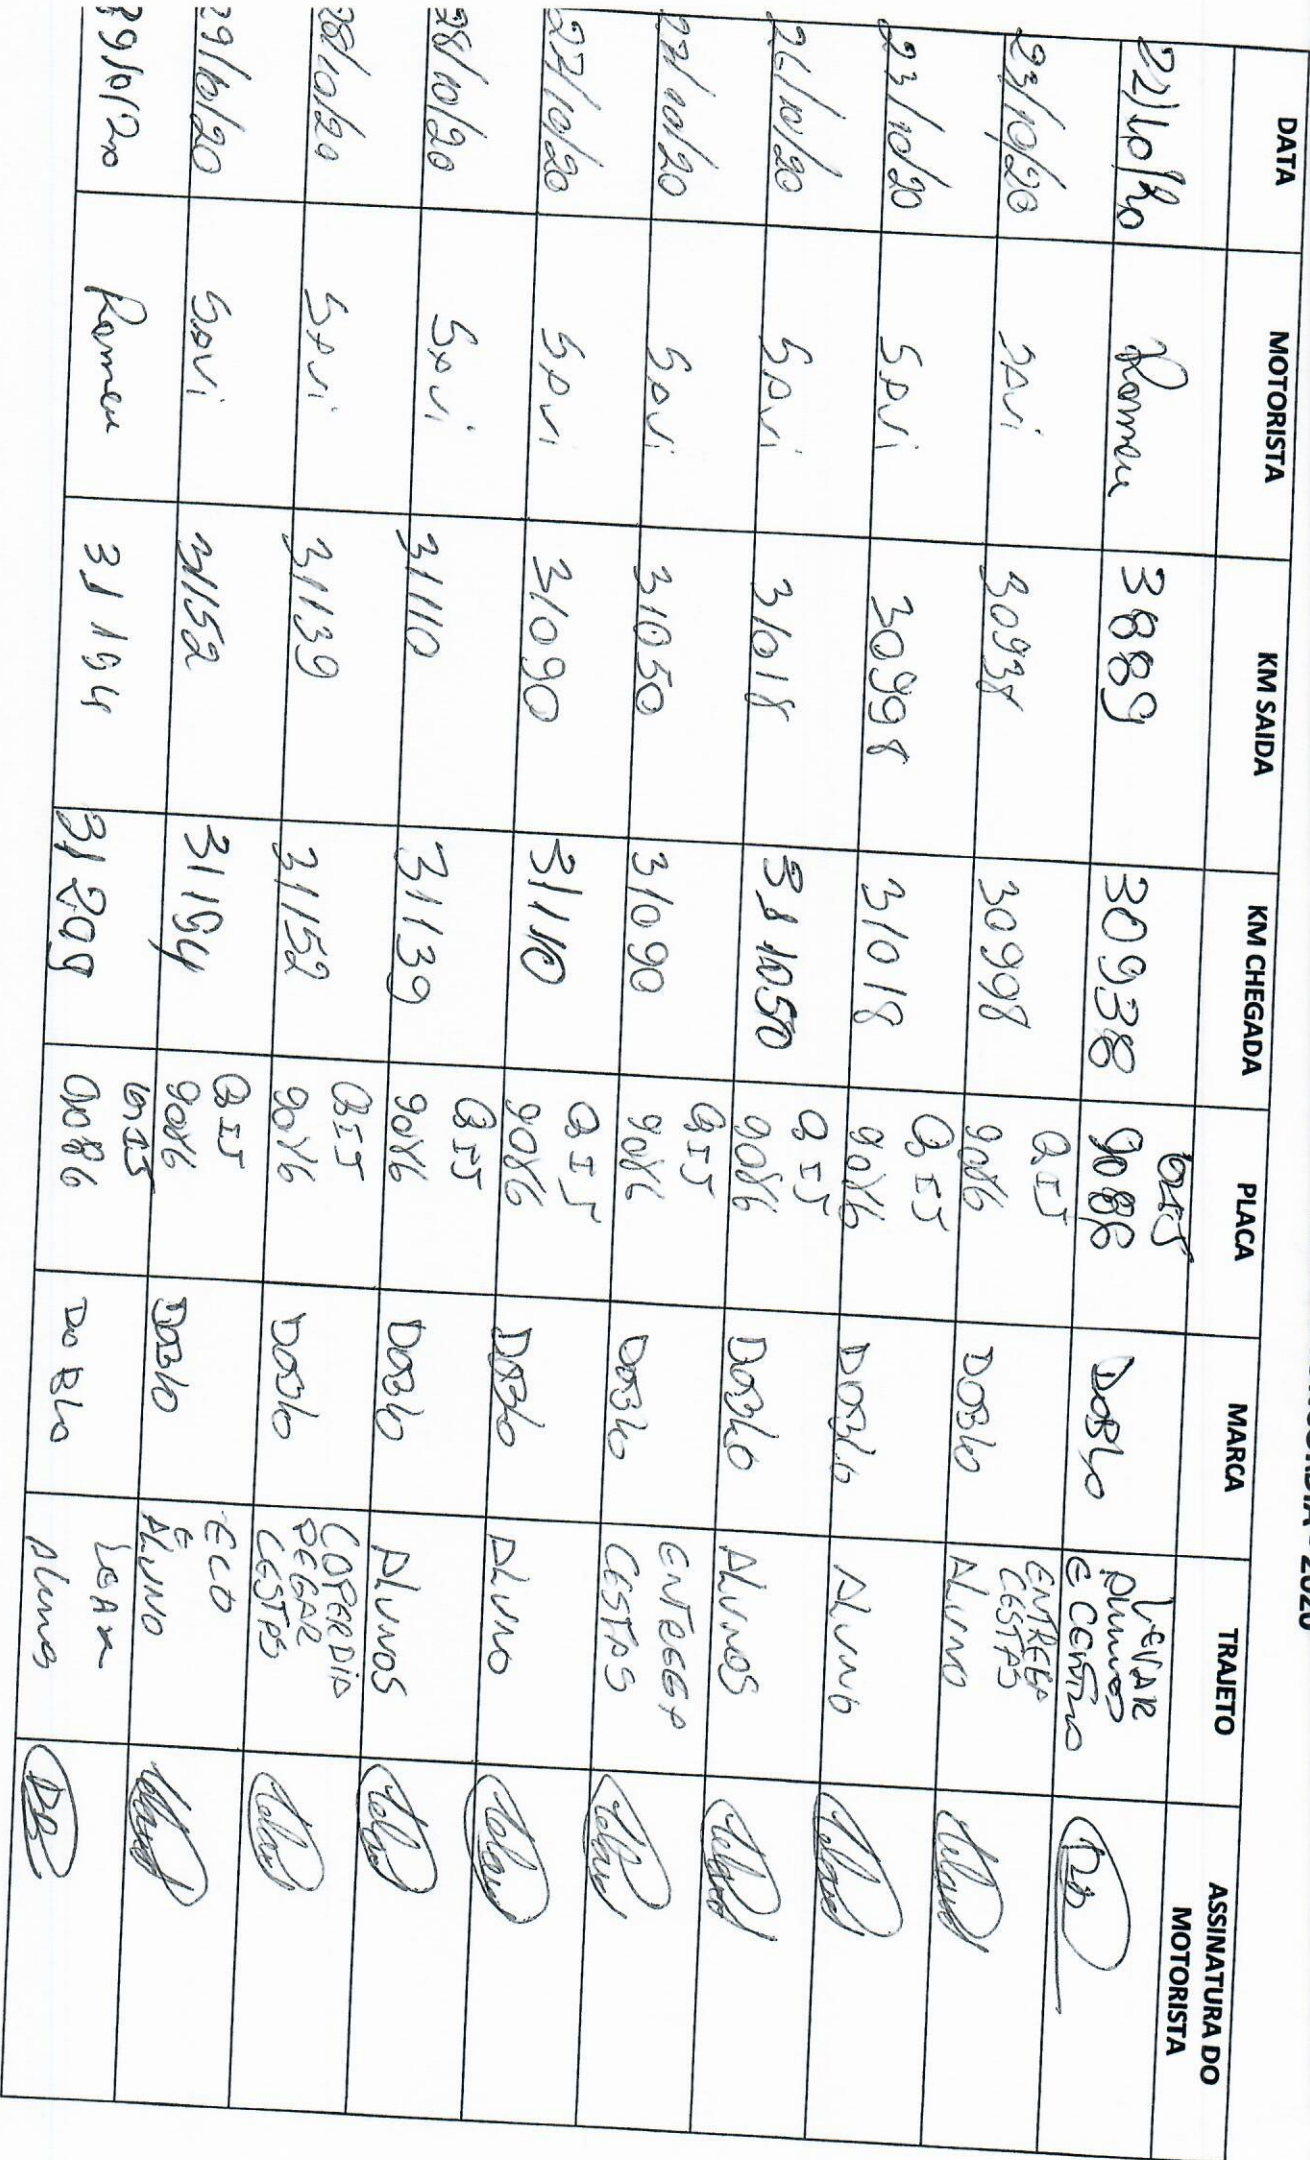 2020
DATA MOTORISTA KM SAIDA KM CHEGADA PLACA MARCA TRAJETO ASSINATURA DO MOTORISTA
22/10/20 Romeu 3889 30938 QIJ 9086 DOBLO LEVAR Alunos E CENTRO
23/10/20 SAVI 30938 30998 QIJ 9086 DOBLO ENTREGA CESTAS ALUNO
23/10/20 SAVI 30998 31018 QIJ 9086 DOBLO ALUNO
26/10/20 SAVI 31018 31050 QIJ 9086 DOBLO ALUNOS
27/10/20 SAVI 31050 31090 QIJ 9086 DOBLO ENTREGA CESTAS
27/10/20 SAVI 31090 31110 QIJ 9086 DOBLO ALUNO
28/10/20 SAVI 31110 31139 QIJ 9086 DOBLO ALUNOS
28/10/20 SAVI 31139 31152 QIJ 9086 DOBLO COPERDIA PEGAR CESTAS
29/10/20 SAVI 31152 31194 QIJ 9086 DOBLO ECO E ALUNO
29/10/20 Romeu 31194 31299 QIJ 9086 DOBLO Alunos